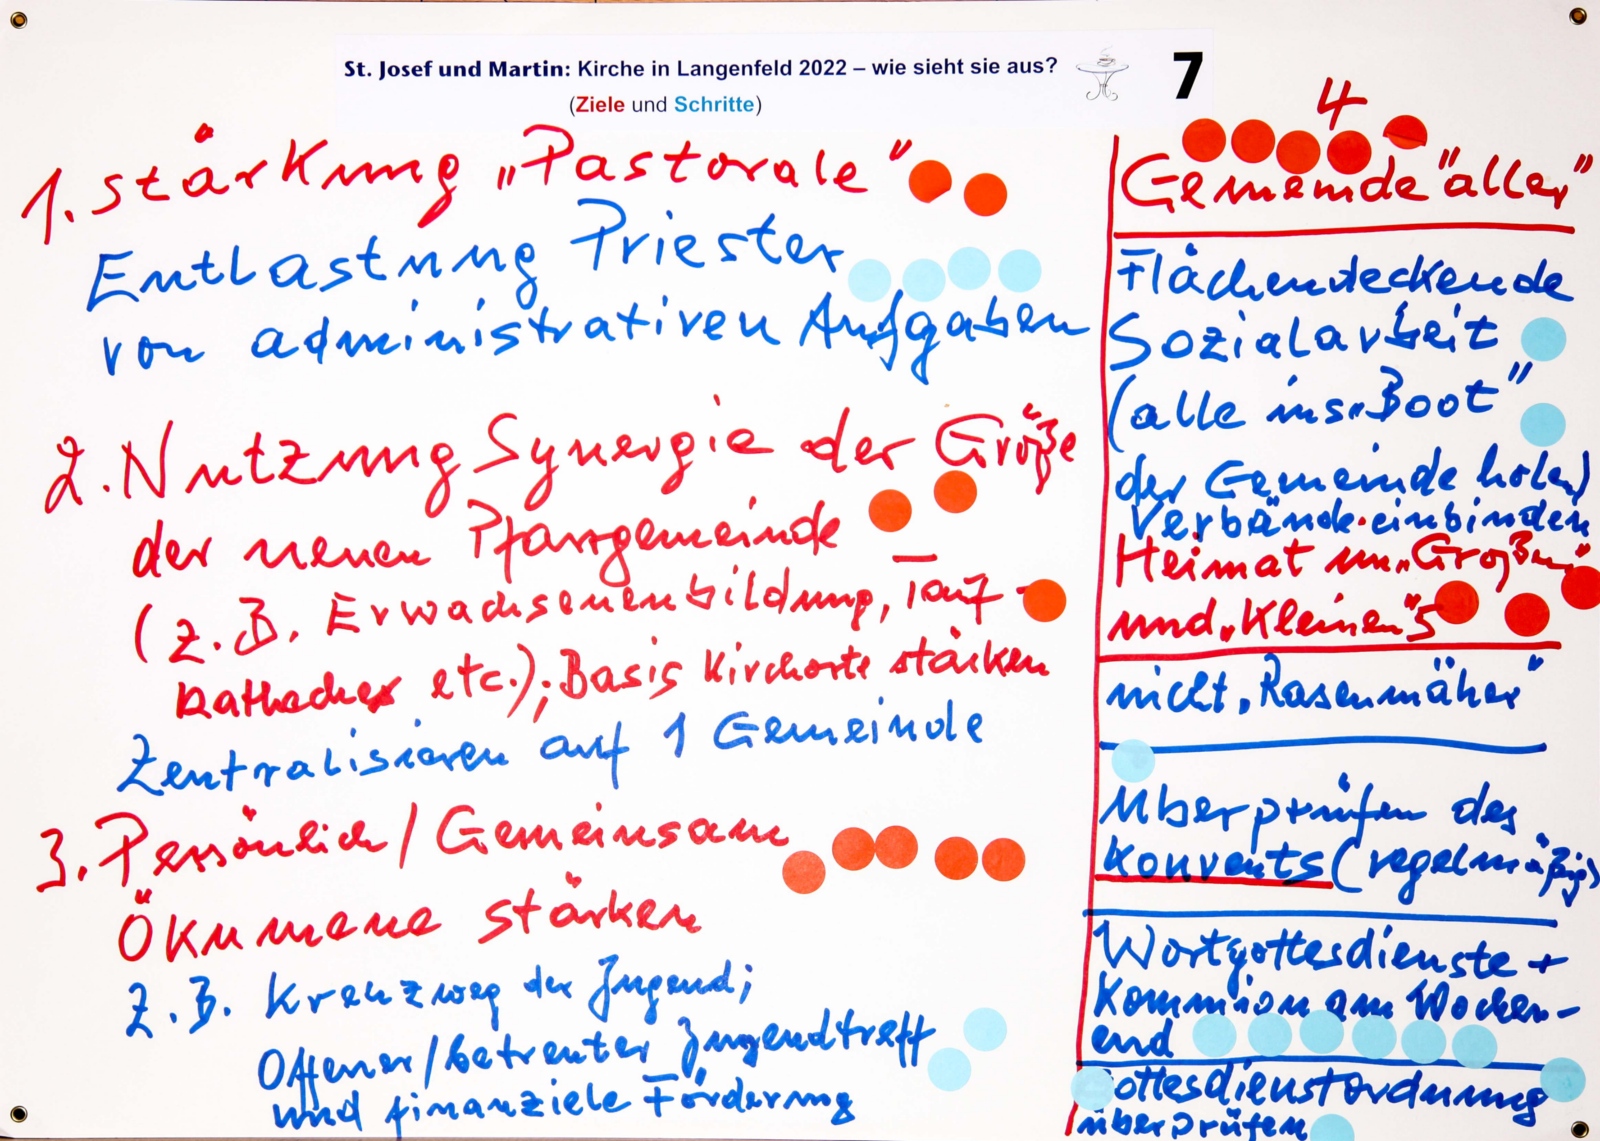 St. Josef und Martin: Kirche in Langenfeld 2022 – wie sieht sie aus?
(Ziele und Schritte)
7
1. Stärkung „Pastorale"
Entlastung Priester
von administrativen Aufgaben
2. Nutzung Synergie der Größe
der neuen Pfarrgemeinde
(z.B. Erwachsenenbildung, Tauf-
kathechese etc.); Basis Kirchorte stärken
Zentralisieren auf 1 Gemeinde
3. Persönlich/Gemeinsam
Ökumene stärken
z.B. Kreuzweg der Jugend;
Offener/betreuter Jugendtreff
und finanziele Förderung
4
Gemeinde "aller"
Flächendeckende
Sozialarbeit
(alle ins „Boot"
der Gemeinde holen)
Verbände einbinden
Heimat im „Großen"
und „Kleinen" 5
nicht „Rasenmäher"
Überprüfen des
Konvents (regelmäßig)
Wortgottesdienste +
Kommunion am Wochen-
end
Gottesdienstordnung
überprüfen